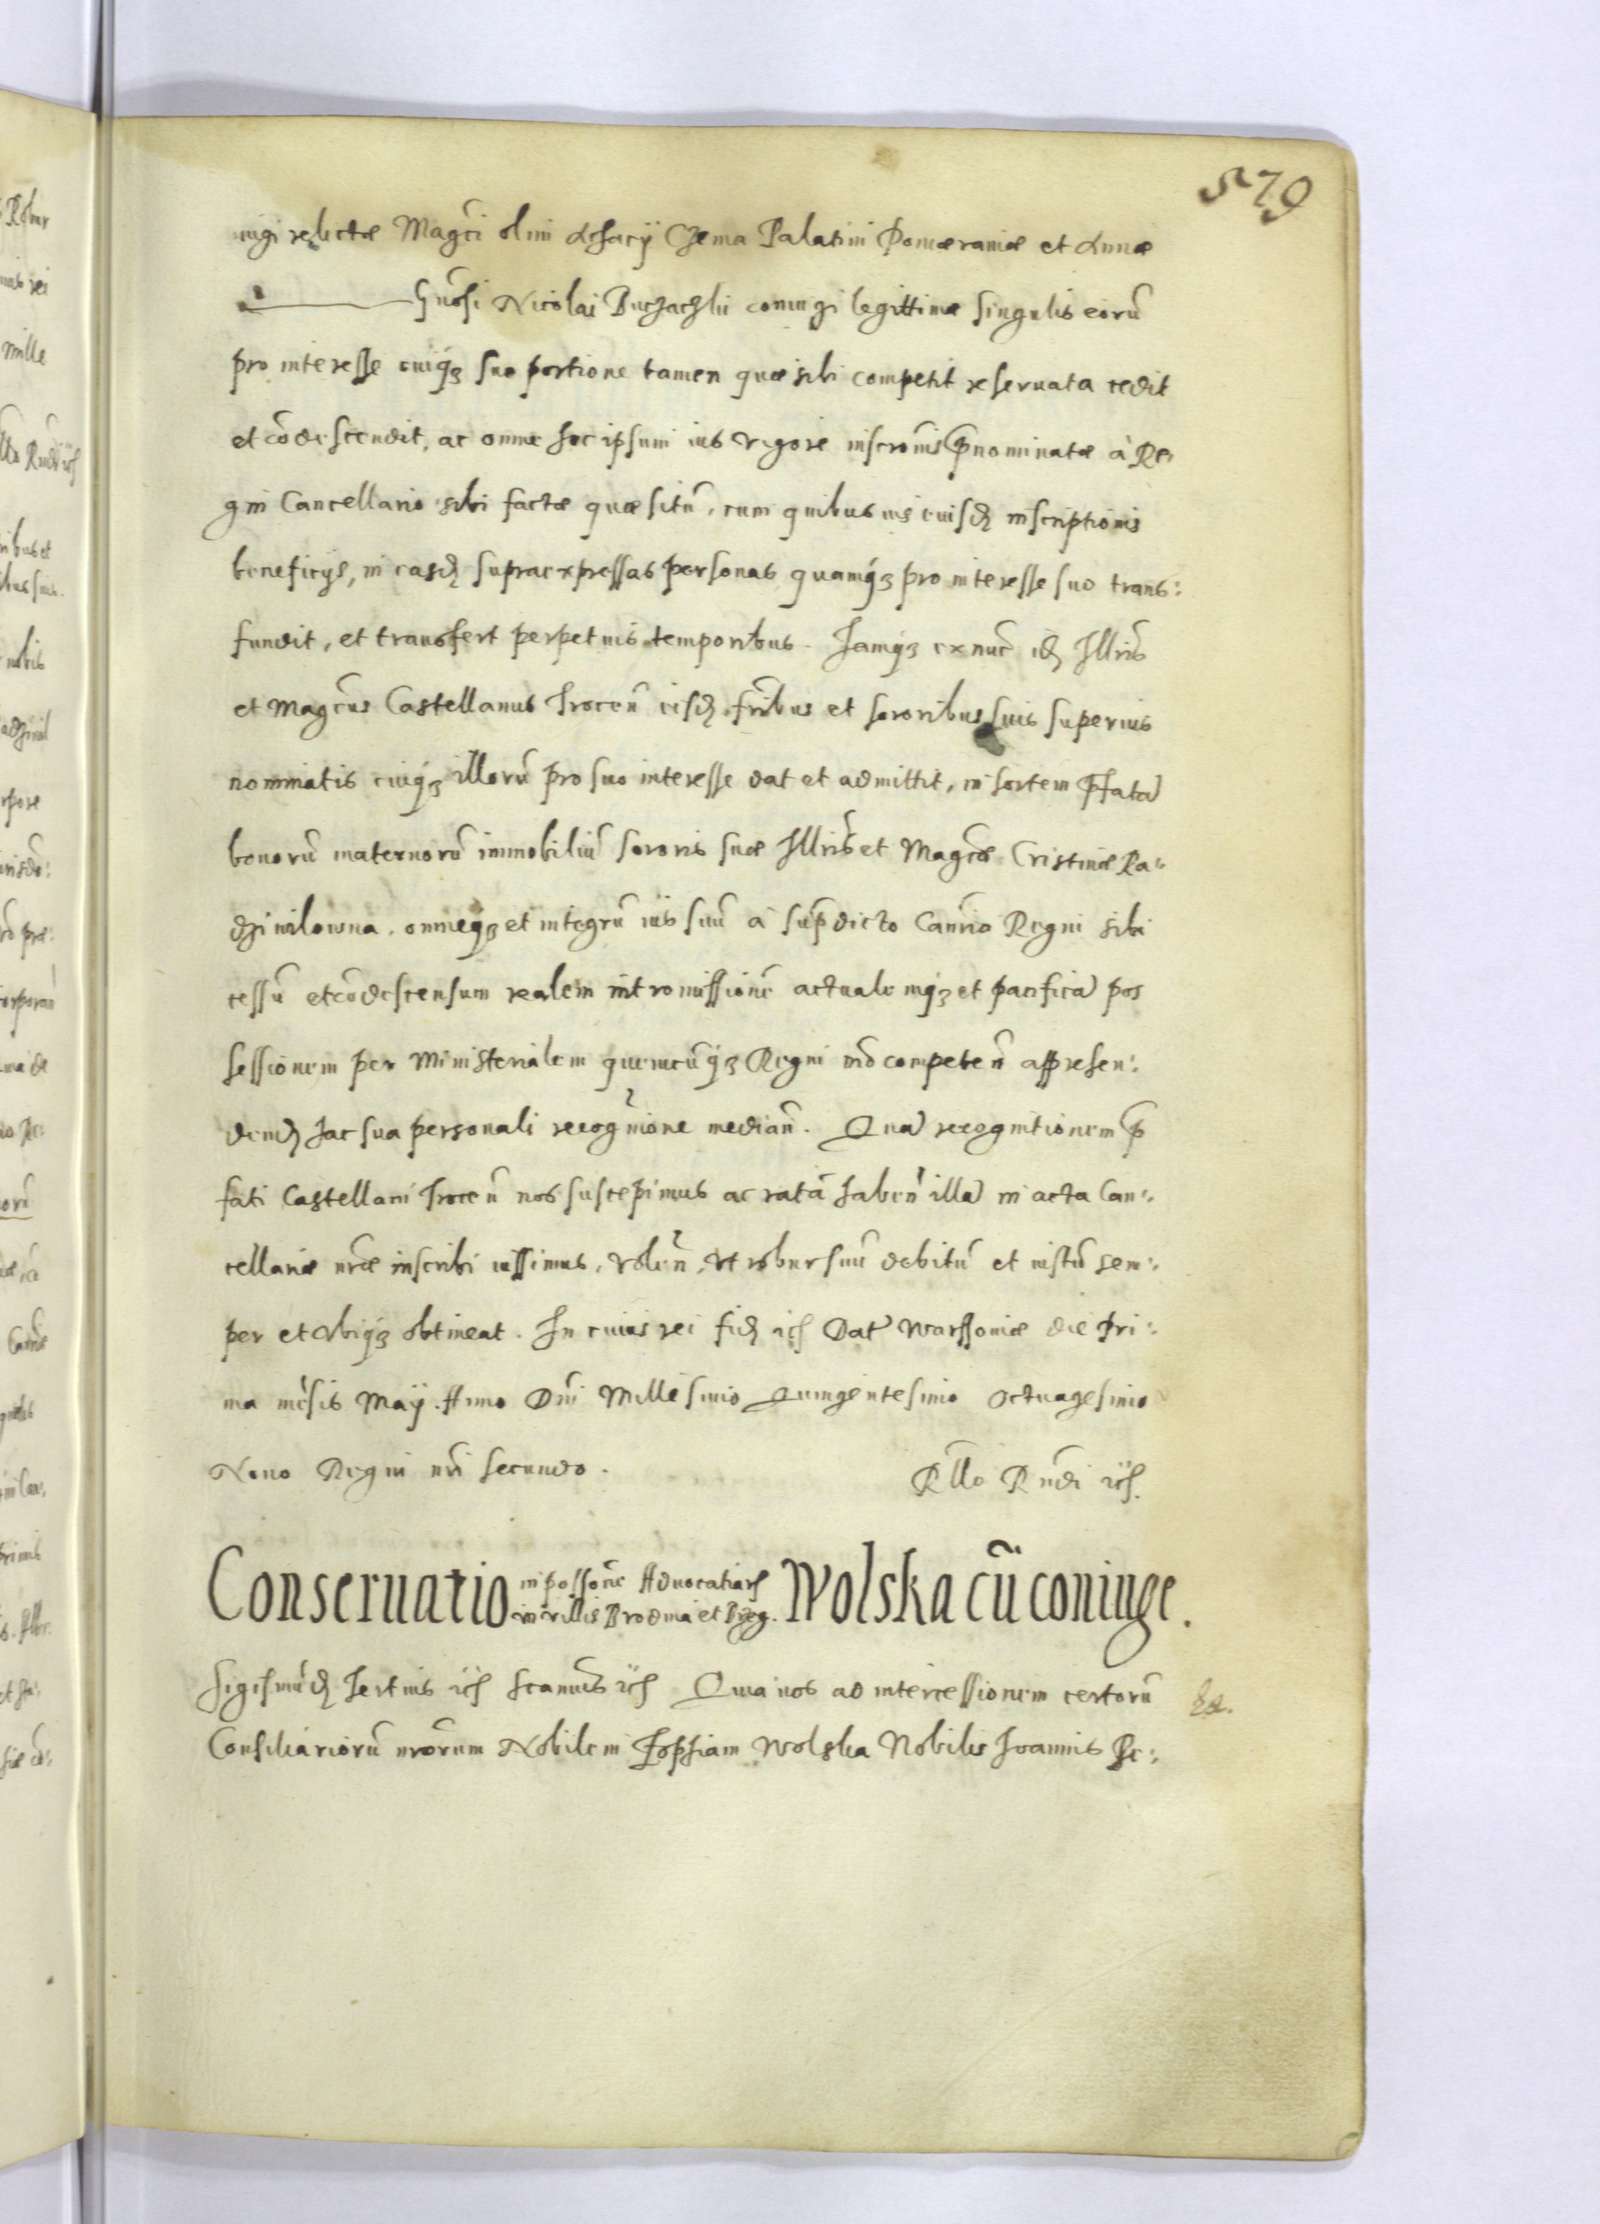 579
iugi relictæ Magci olim Achacij Czema Palatini Pomæraniæ et Annæ
Gnosi Nicolai Buchachlii coniugi legittimæ singulis eorū
pro interesse cuiqꝫ suo portione tamen quæ sibi competit reseruata cedit
et cōdescendit, ac omne hoc ipsum ius vigore inscrōnis p̄nominatæ à Re-
gni Cancellario sibi factæ quæsitū, cum quibusuis eiusd inscriptionis
beneficijs, in easd supraexpressas personas quamqꝫ pro interesse suo trans:
fundit, et transfert perpetuis temporibus. Iamqꝫ ex nūc id Illris
et Magcus Castellanus Trocen̄ eisd fribus et sororibus suis superius
nominatis cuiqꝫ illorū pro suo interesse dat et admittit, in sortem p̄fatā
bonorū maternorū immobiliū sororis suæ Illris et Magcæ Cristinæ Ra-
dziwilowna. omneqꝫ et integrū ius suū à supdicto Canrio Regni sibi
cessū et cōdescensum realem intromissionē actualemqꝫ et pacificā pos
sessionem per Ministerialem quemcūqꝫ Regni ad competen̄ apprehen:
dend hac sua personali recognione median̄. Quā recognitionem p̄
fati Castellani Trocen̄ nos suscepimus ac ratā haben̄ illā in acta Can:
cellariæ nræ inscribi iussimus, volen̄, vt robur suū debitū et iustū sem:
per et vbiqꝫ obtineat. In cuius rei fid ic̄ Dat Warssouiæ die Pri:
ma mēsis Maij. Anno Dni Millesimo Quingentesimo Octuagesimo
Nono Regni nri secundo.
Rllo Rndi ic̄.
Conseruatio in possōne Aduocatiar̄ in villis Brodnia et Brzeg. Wolska cū coniuge.
Sigismūd Tertius ic̄ Scanus ic̄ Quia nos ad intercessionem certorū
Consiliariorū nrorum Nobilem Zophiam Wolska Nobilis Ioannis Re: